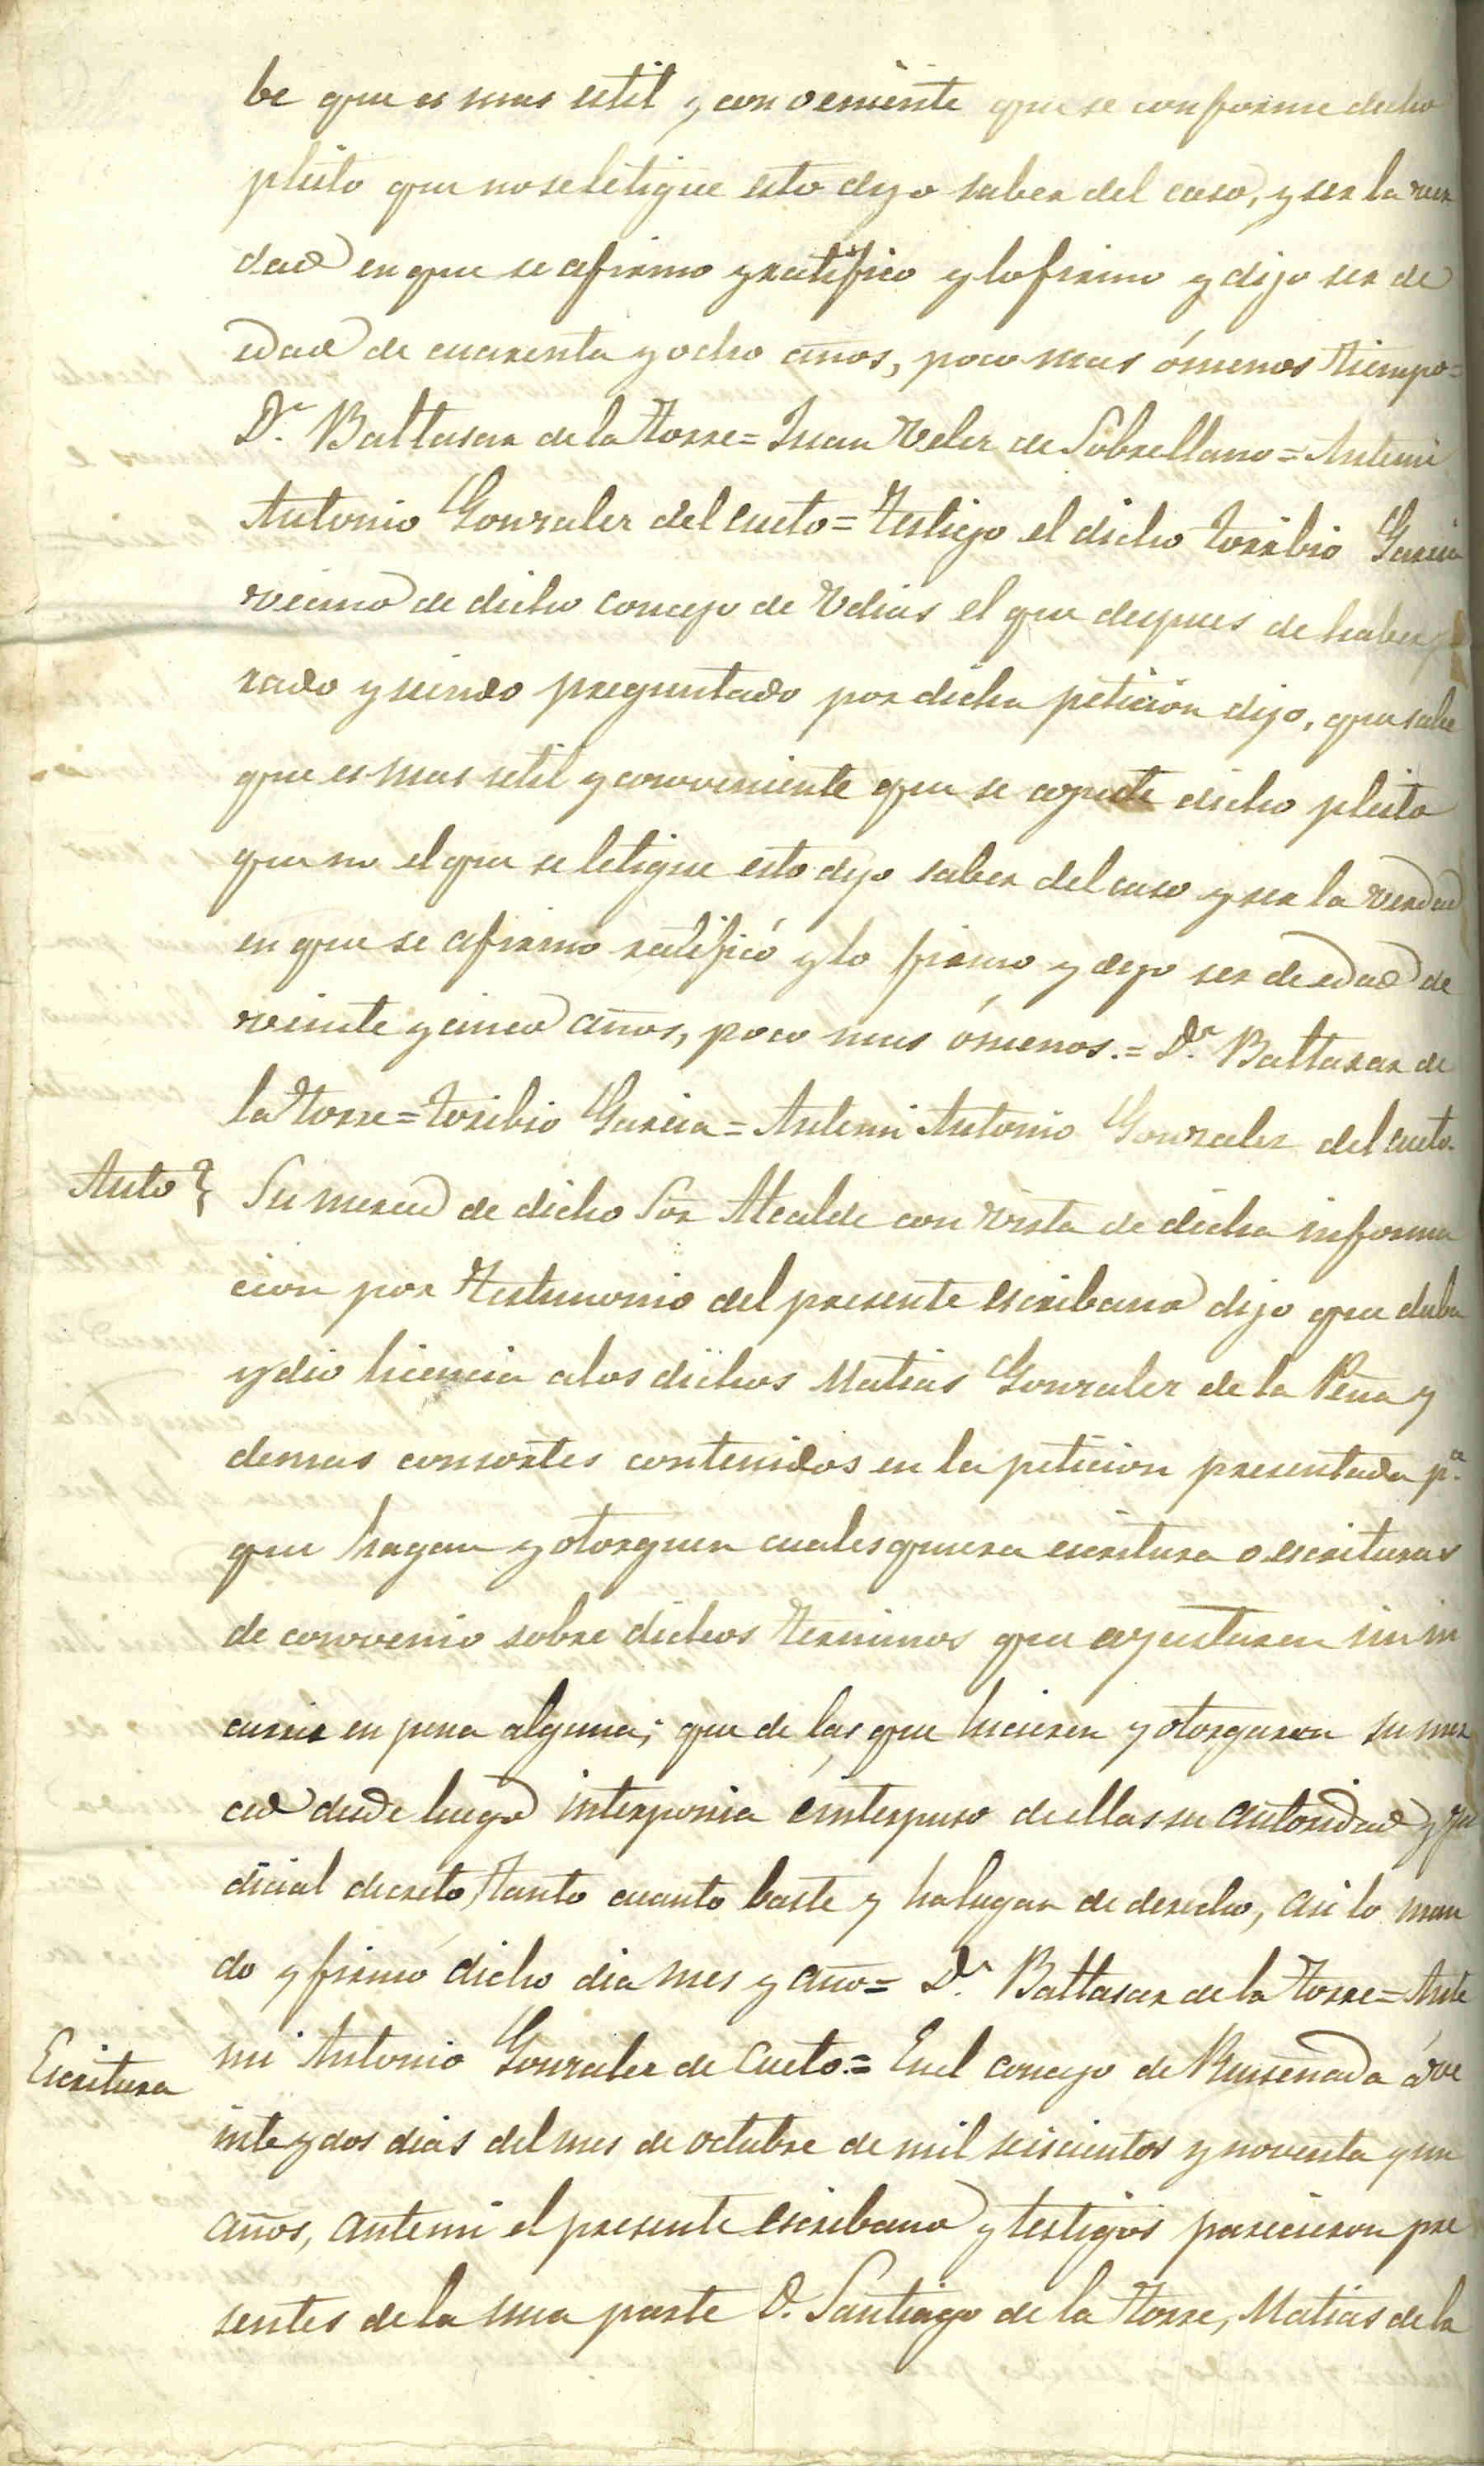 be que es mas util y conveniente que se conforme dicho
pleito que no se letigue esto dijo saber del caso, y ser la ver
dad en que se afirmo y ratifico y lo firmo y dijo ser de
edad de cuarenta y ocho años, poco mas ó menos tiempo=
Dr. Baltasar de la Torre= Juan Velez de Sobrellano= Antemi
Antonio Gonzalez del cueto= Testigo el dicho Toribio Garcia
vecino de dicho concejo de Udias el que despues de haber ju
rado y siendo preguntado por dicha petición dijo, que sabe
que es mas util y conveniente que se ajuste dicho pleito
que no el que se letigue esto dijo saber del caso y ser la verdad
en que se afirmo ratificó y lo firmo y dijo ser de edad de
veinte y cinco años, poco mas ó menos.= Dr. Baltasar de
la Torre= Toribio Garcia= Antemi Antonio Gonzalez del cueto.
Auto Su merced de dicho Sor Alcalde con vista de dicha informa
cion por Testimonio del presente escribano dijo que daba
y dio licencia a los dichos Matias Gonzalez de la Peña y
demas consortes contenidos en la peticion presentada pa.
que hagan y otorguen cualesquiera escritura o escrituras
de convenio sobre dichos terminos que ajustaren sin in
currir en pena alguna; que de las que hicieren y otorgaren su mer
ced desde luego interponia é interpuso de ellas su autoridad y ju
dicial decreto, tanto cuanto baste y ha lugar de derecho, asi lo man
do y firmó dicho dia mes y año= Dr. Baltasar de la Torre= Ante
mi Antonio Gonzalez de Cueto.= En el concejo de Ruiseñada á ve
Escritura
inte y dos dias del mes de octubre de mil seiscientos y noventa y un
años, antemi el presente escribano y testigos parecieron pre
sentes de la una parte D. Santiago de la Torre, Matias de la